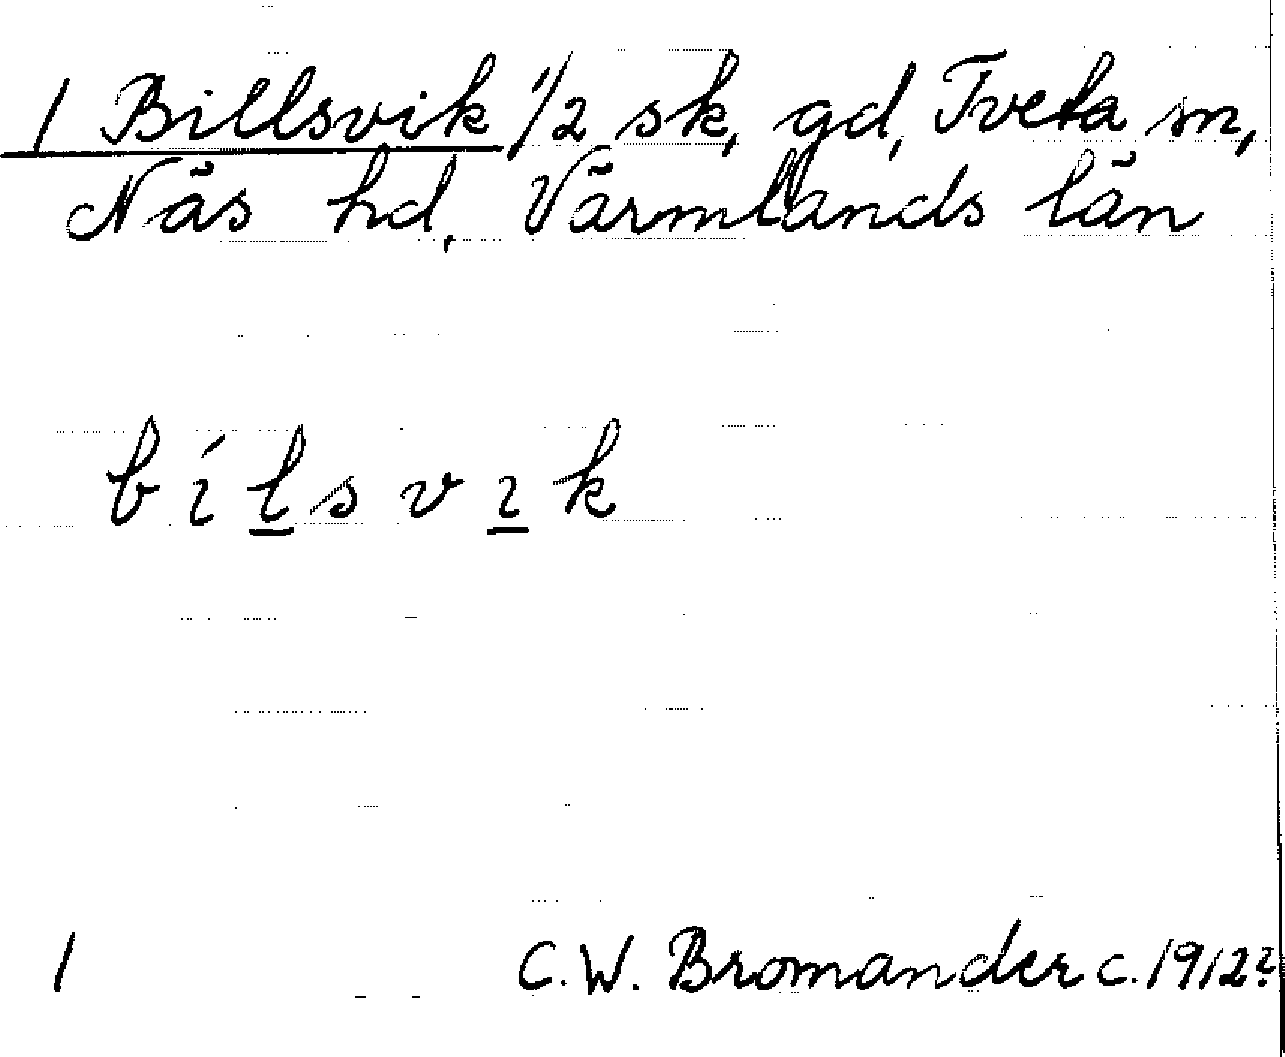 1 Billsvik 1/2 sk, gd, Tveta sn,
Näs hd, Värmlands län
bílsvık
1 C.W. Bromander c. 1912?